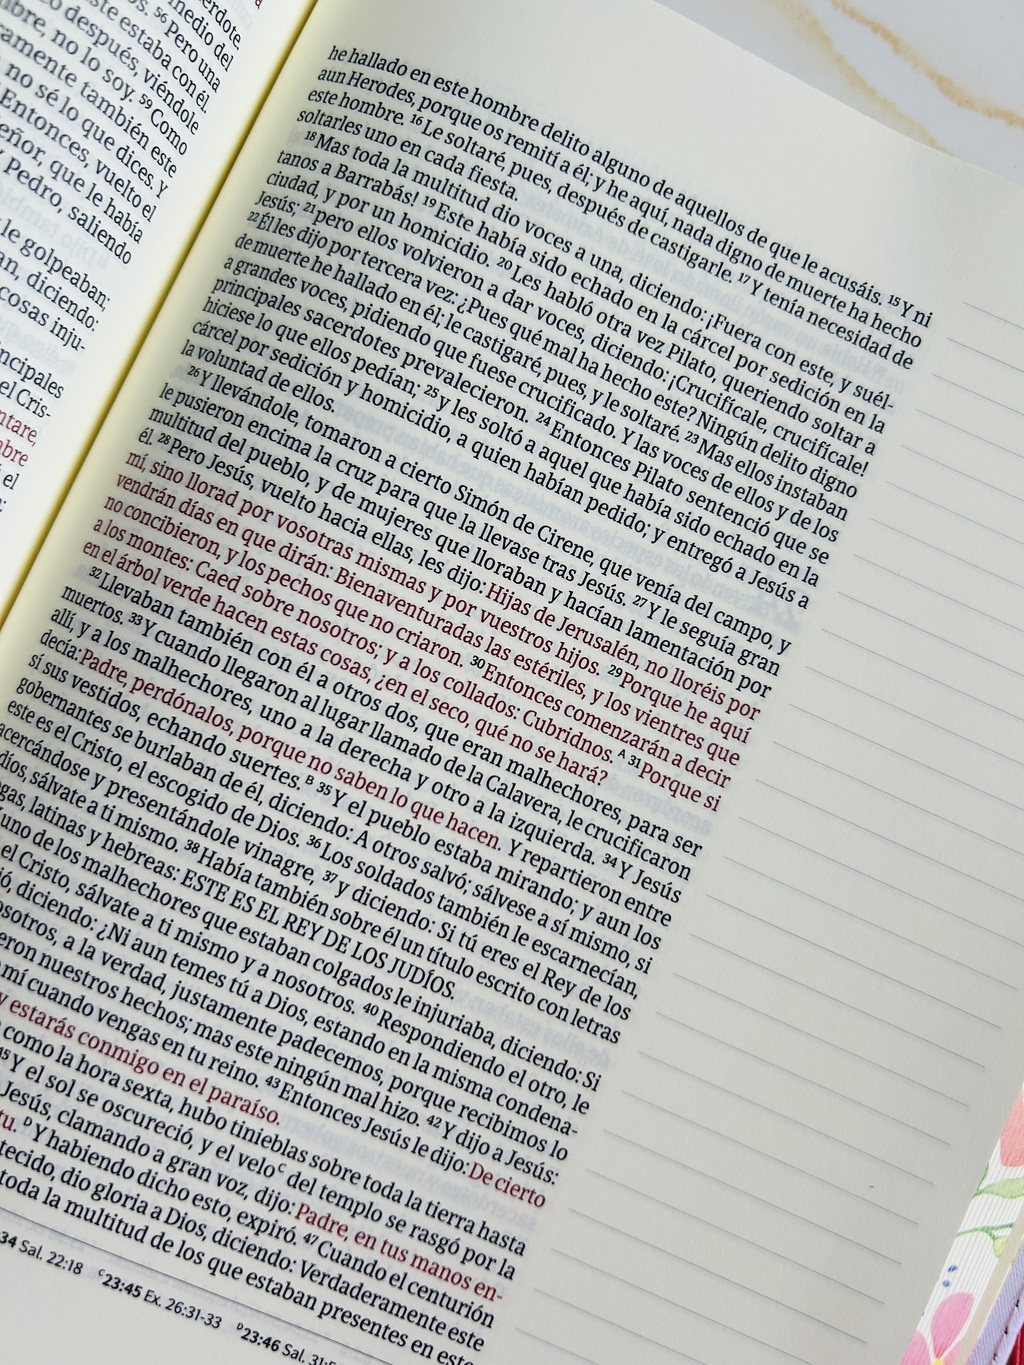 erdote,
medio del
56 Pero una
este estaba con él.
o después, viéndole
mbre, no lo soy. 59 Como
ramente también este
no sé lo que dices. Y
Entonces, vuelto el
eñor, que le había
Pedro, saliendo
le golpeaban;
an, diciendo:
cosas inju-
incipales
el Cris-
ntare,
mbre
el
he hallado en este hombre delito alguno de aquellos de que le acusáis. 15 Y ni
aun Herodes, porque os remití a él; y he aquí, nada digno de muerte ha hecho
este hombre. 16 Le soltaré, pues, después de castigarle. 17 Y tenía necesidad de
soltarles uno en cada fiesta.
18 Mas toda la multitud dio voces a una, diciendo: ¡Fuera con este, y suél-
tanos a Barrabás! 19 Este había sido echado en la cárcel por sedición en la
ciudad, y por un homicidio. 20 Les habló otra vez Pilato, queriendo soltar a
Jesús; 21 pero ellos volvieron a dar voces, diciendo: ¡Crucifícale, crucifícale!
22 Él les dijo por tercera vez: ¿Pues qué mal ha hecho este? Ningún delito digno
de muerte he hallado en él; le castigaré, pues, y le soltaré. 23 Mas ellos instaban
a grandes voces, pidiendo que fuese crucificado. Y las voces de ellos y de los
principales sacerdotes prevalecieron. 24 Entonces Pilato sentenció que se
hiciese lo que ellos pedían; 25 y les soltó a aquel que había sido echado en la
cárcel por sedición y homicidio, a quien habían pedido; y entregó a Jesús a
la voluntad de ellos.
26 Y llevándole, tomaron a cierto Simón de Cirene, que venía del campo, y
le pusieron encima la cruz para que la llevase tras Jesús. 27 Y le seguía gran
multitud del pueblo, y de mujeres que lloraban y hacían lamentación por
él. 28 Pero Jesús, vuelto hacia ellas, les dijo: Hijas de Jerusalén, no lloréis por
mí, sino llorad por vosotras mismas y por vuestros hijos. 29 Porque he aquí
vendrán días en que dirán: Bienaventuradas las estériles, y los vientres que
no concibieron, y los pechos que no criaron. 30 Entonces comenzarán a decir
a los montes: Caed sobre nosotros; y a los collados: Cubridnos. A 31 Porque si
en el árbol verde hacen estas cosas, ¿en el seco, qué no se hará?
32 Llevaban también con él a otros dos, que eran malhechores, para ser
muertos. 33 Y cuando llegaron al lugar llamado de la Calavera, le crucificaron
allí, y a los malhechores, uno a la derecha y otro a la izquierda. 34 Y Jesús
decía: Padre, perdónalos, porque no saben lo que hacen. Y repartieron entre
sí sus vestidos, echando suertes. B 35 Y el pueblo estaba mirando; y aun los
gobernantes se burlaban de él, diciendo: A otros salvó; sálvese a sí mismo, si
este es el Cristo, el escogido de Dios. 36 Los soldados también le escarnecían,
acercándose y presentándole vinagre, 37 y diciendo: Si tú eres el Rey de los
díos, sálvate a ti mismo. 38 Había también sobre él un título escrito con letras
egas, latinas y hebreas: ESTE ES EL REY DE LOS JUDÍOS.
uno de los malhechores que estaban colgados le injuriaba, diciendo: Si
el Cristo, sálvate a ti mismo y a nosotros. 40 Respondiendo el otro, le
ó, diciendo: ¿Ni aun temes tú a Dios, estando en la misma condena-
osotros, a la verdad, justamente padecemos, porque recibimos lo
eron nuestros hechos; mas este ningún mal hizo. 42 Y dijo a Jesús:
mí cuando vengas en tu reino. 43 Entonces Jesús le dijo: De cierto
y estarás conmigo en el paraíso.
como la hora sexta, hubo tinieblas sobre toda la tierra hasta
45 Y el sol se oscureció, y el velo C del templo se rasgó por la
Jesús, clamando a gran voz, dijo: Padre, en tus manos en-
tu. D Y habiendo dicho esto, expiró. 47 Cuando el centurión
tecido, dio gloria a Dios, diciendo: Verdaderamente este
toda la multitud de los que estaban presentes en este
34 Sal. 22:18 C 23:45 Ex. 26:31-33 D 23:46 Sal. 31:5